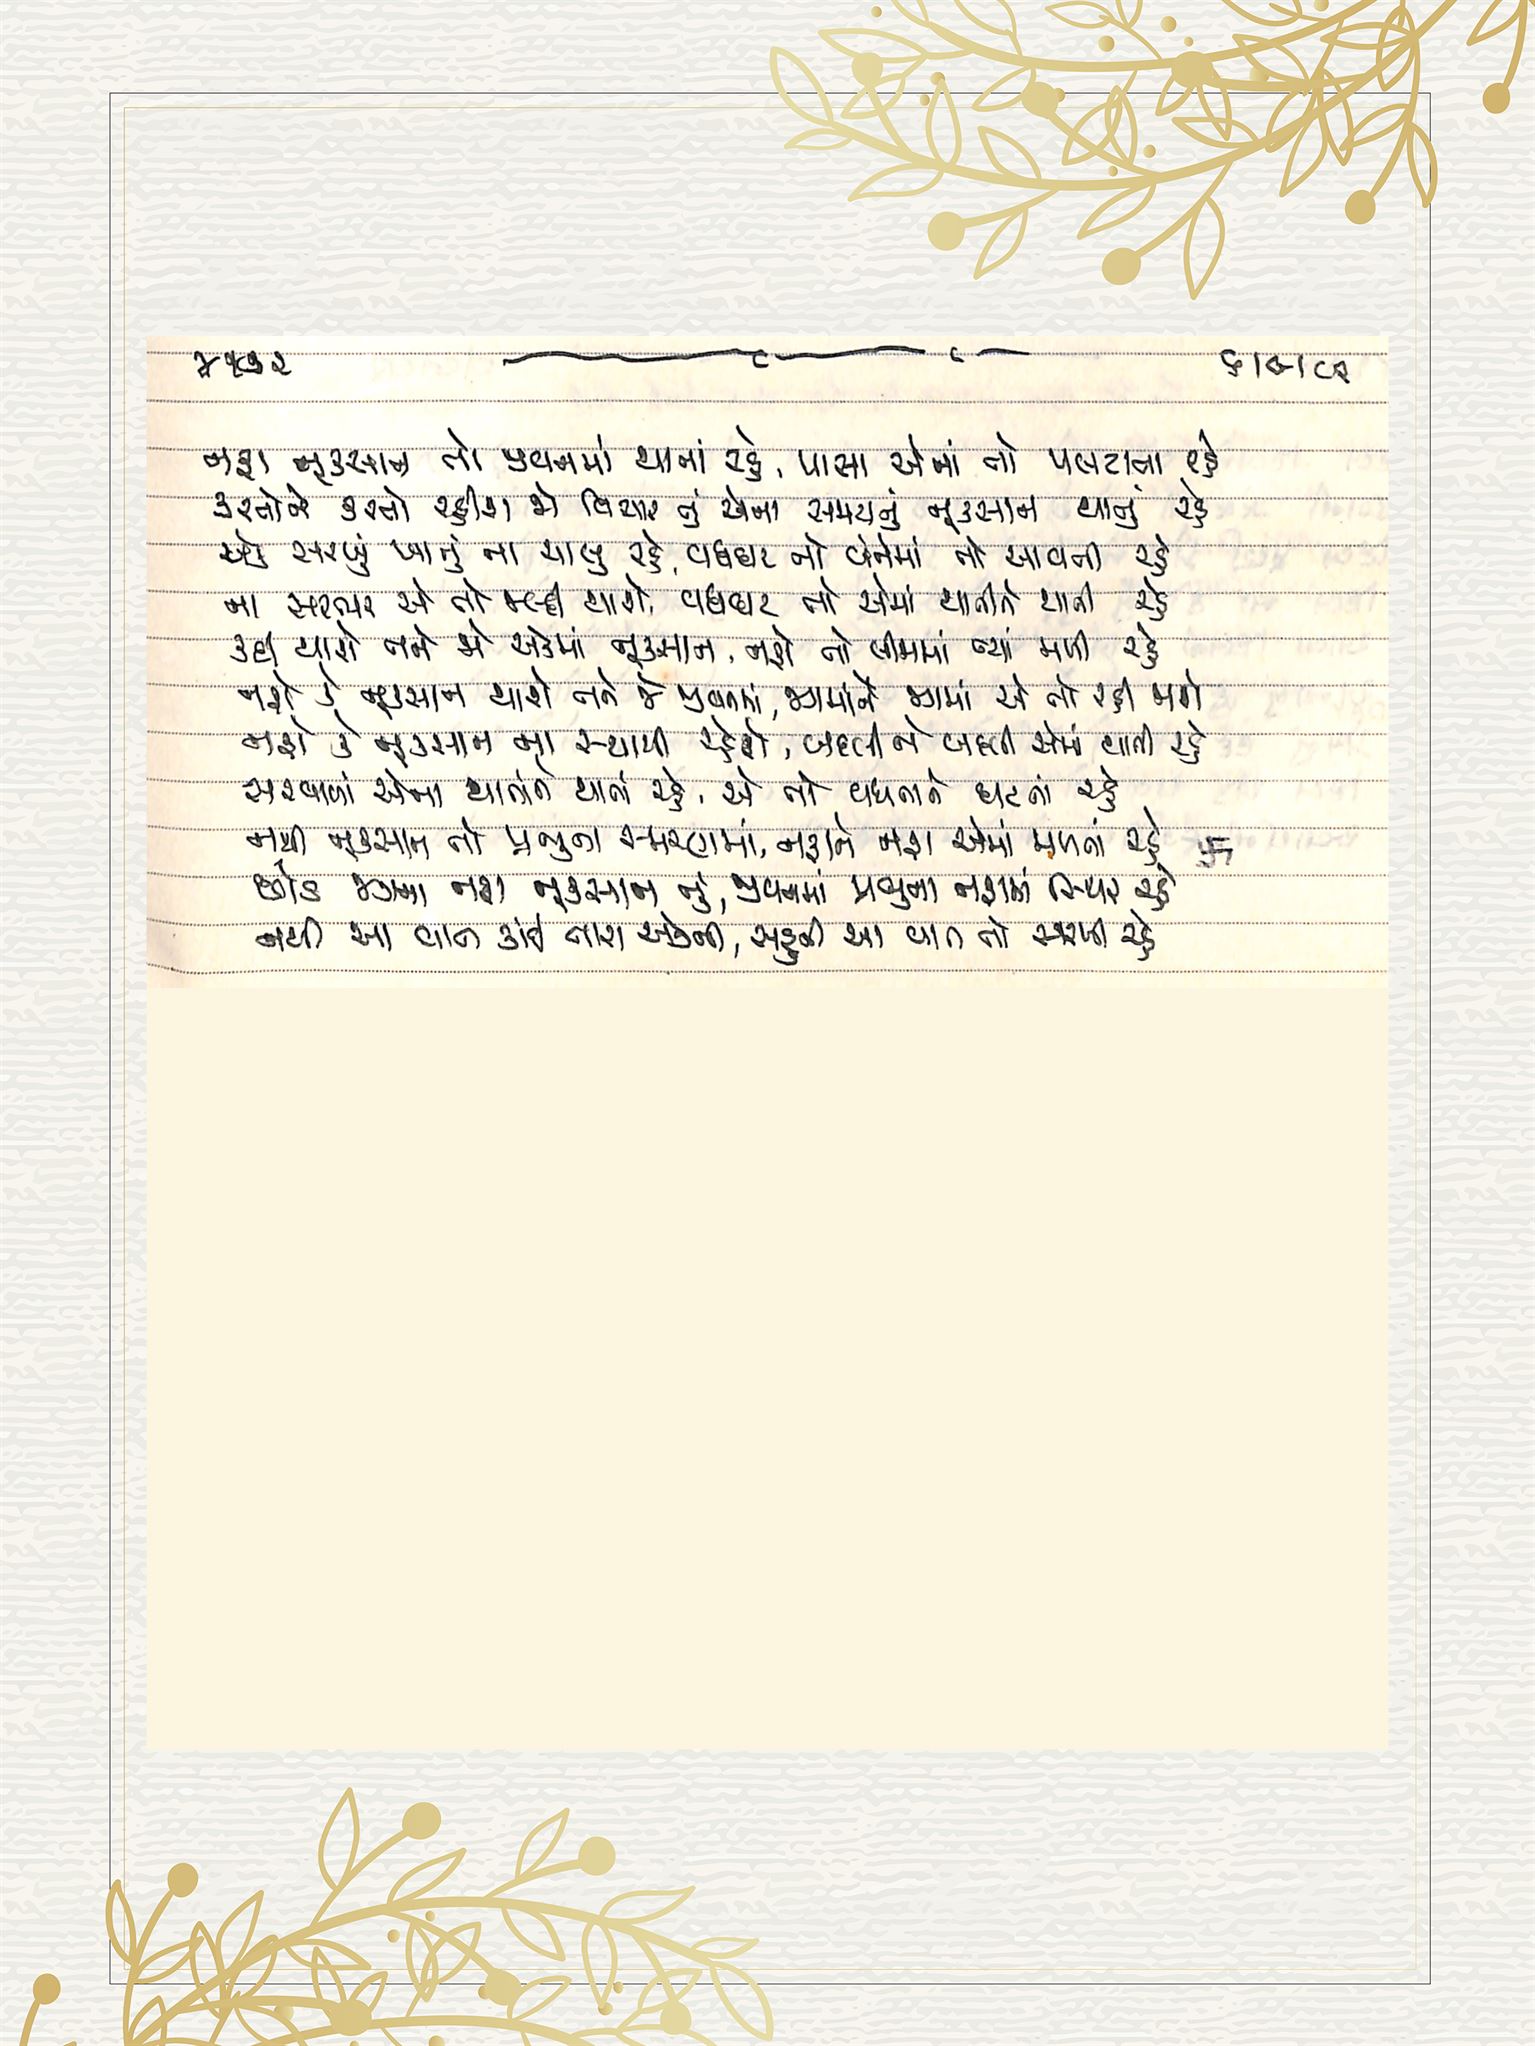 ૪૧૭૨ ૬।૭।૯૨
નફા નૂકસાન તો જીવનમાં થાતાં રહે, પાસા એનાં તો પલટાતા રહે
કરતોને કરતો રહીશ જો વિચાર તું એના સમયનું નૂકસાન થાતું રહે
એક સરખું ખાતું ના ચાલુ રહે, વધઘટ તો બંનેમાં તો આવતી રહે
ના સરભર એ તો થાશે, વધઘટ તો એમાં થાતીને થાતી રહે
કદી થાશે તને જો એકમાં નૂકસાન, નફો તો બીજામાં ત્યાં મળી રહે
નફો કે નૂકસાન થાશે તને જે જીવનમાં, જગમાંને જગમાં એ તો રહી જાશે
નફો કે નૂકસાન ના સ્થાયી રહેશે, બદલીને બદલી એમાં થાતી રહે
સરવાળાં એના થાતાંને થાતાં રહે, એ તો વધતાને ઘટતાં રહે
નથી નૂકસાન તો પ્રભુના સ્મરણમાં, નફાને નફા એમાં મળતાં રહે
છોડ જગના નફા નૂકસાન તું, જીવનમાં પ્રભુના નફામાં સ્થિર રહે
નથી આ વાત કાંઈ તારા એકની, સહુની આ વાત તો સરખી રહે